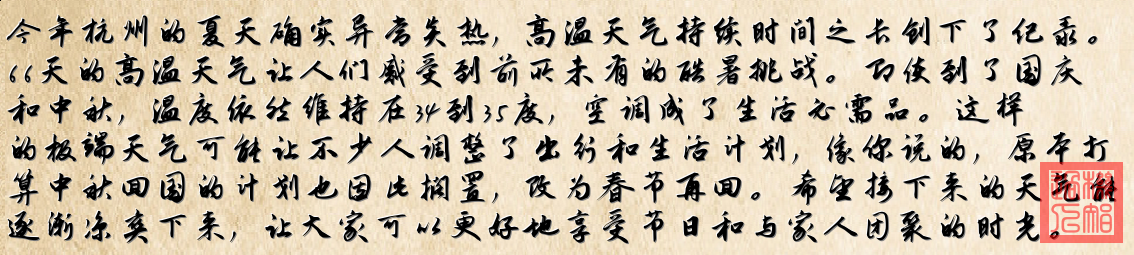 今年杭州的夏天确实异常炎热，高温天气持续时间之长创下了纪录。
66天的高温天气让人们感受到前所未有的酷暑挑战。即使到了国庆
和中秋，温度依然维持在34到35度，空调成了生活必需品。这样
的极端天气可能让不少人调整了出行和生活计划，像你说的，原本打
算中秋回国的计划也因此搁置，改为春节再回。希望接下来的天气能
逐渐凉爽下来，让大家可以更好地享受节日和与家人团聚的时光。